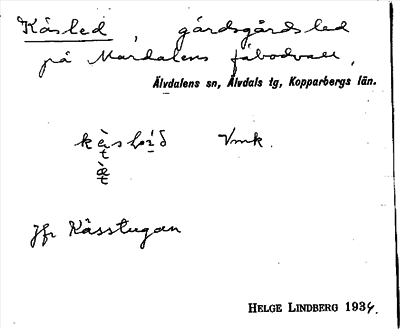 Kåsled, gärdsgårdsled
på Mardalens fäbodvall,
Älvdalens sn, Älvdals tg, Kopparbergs län.
Vmk.
Jfr Kåsstugan
HELGE LINDBERG 1934.